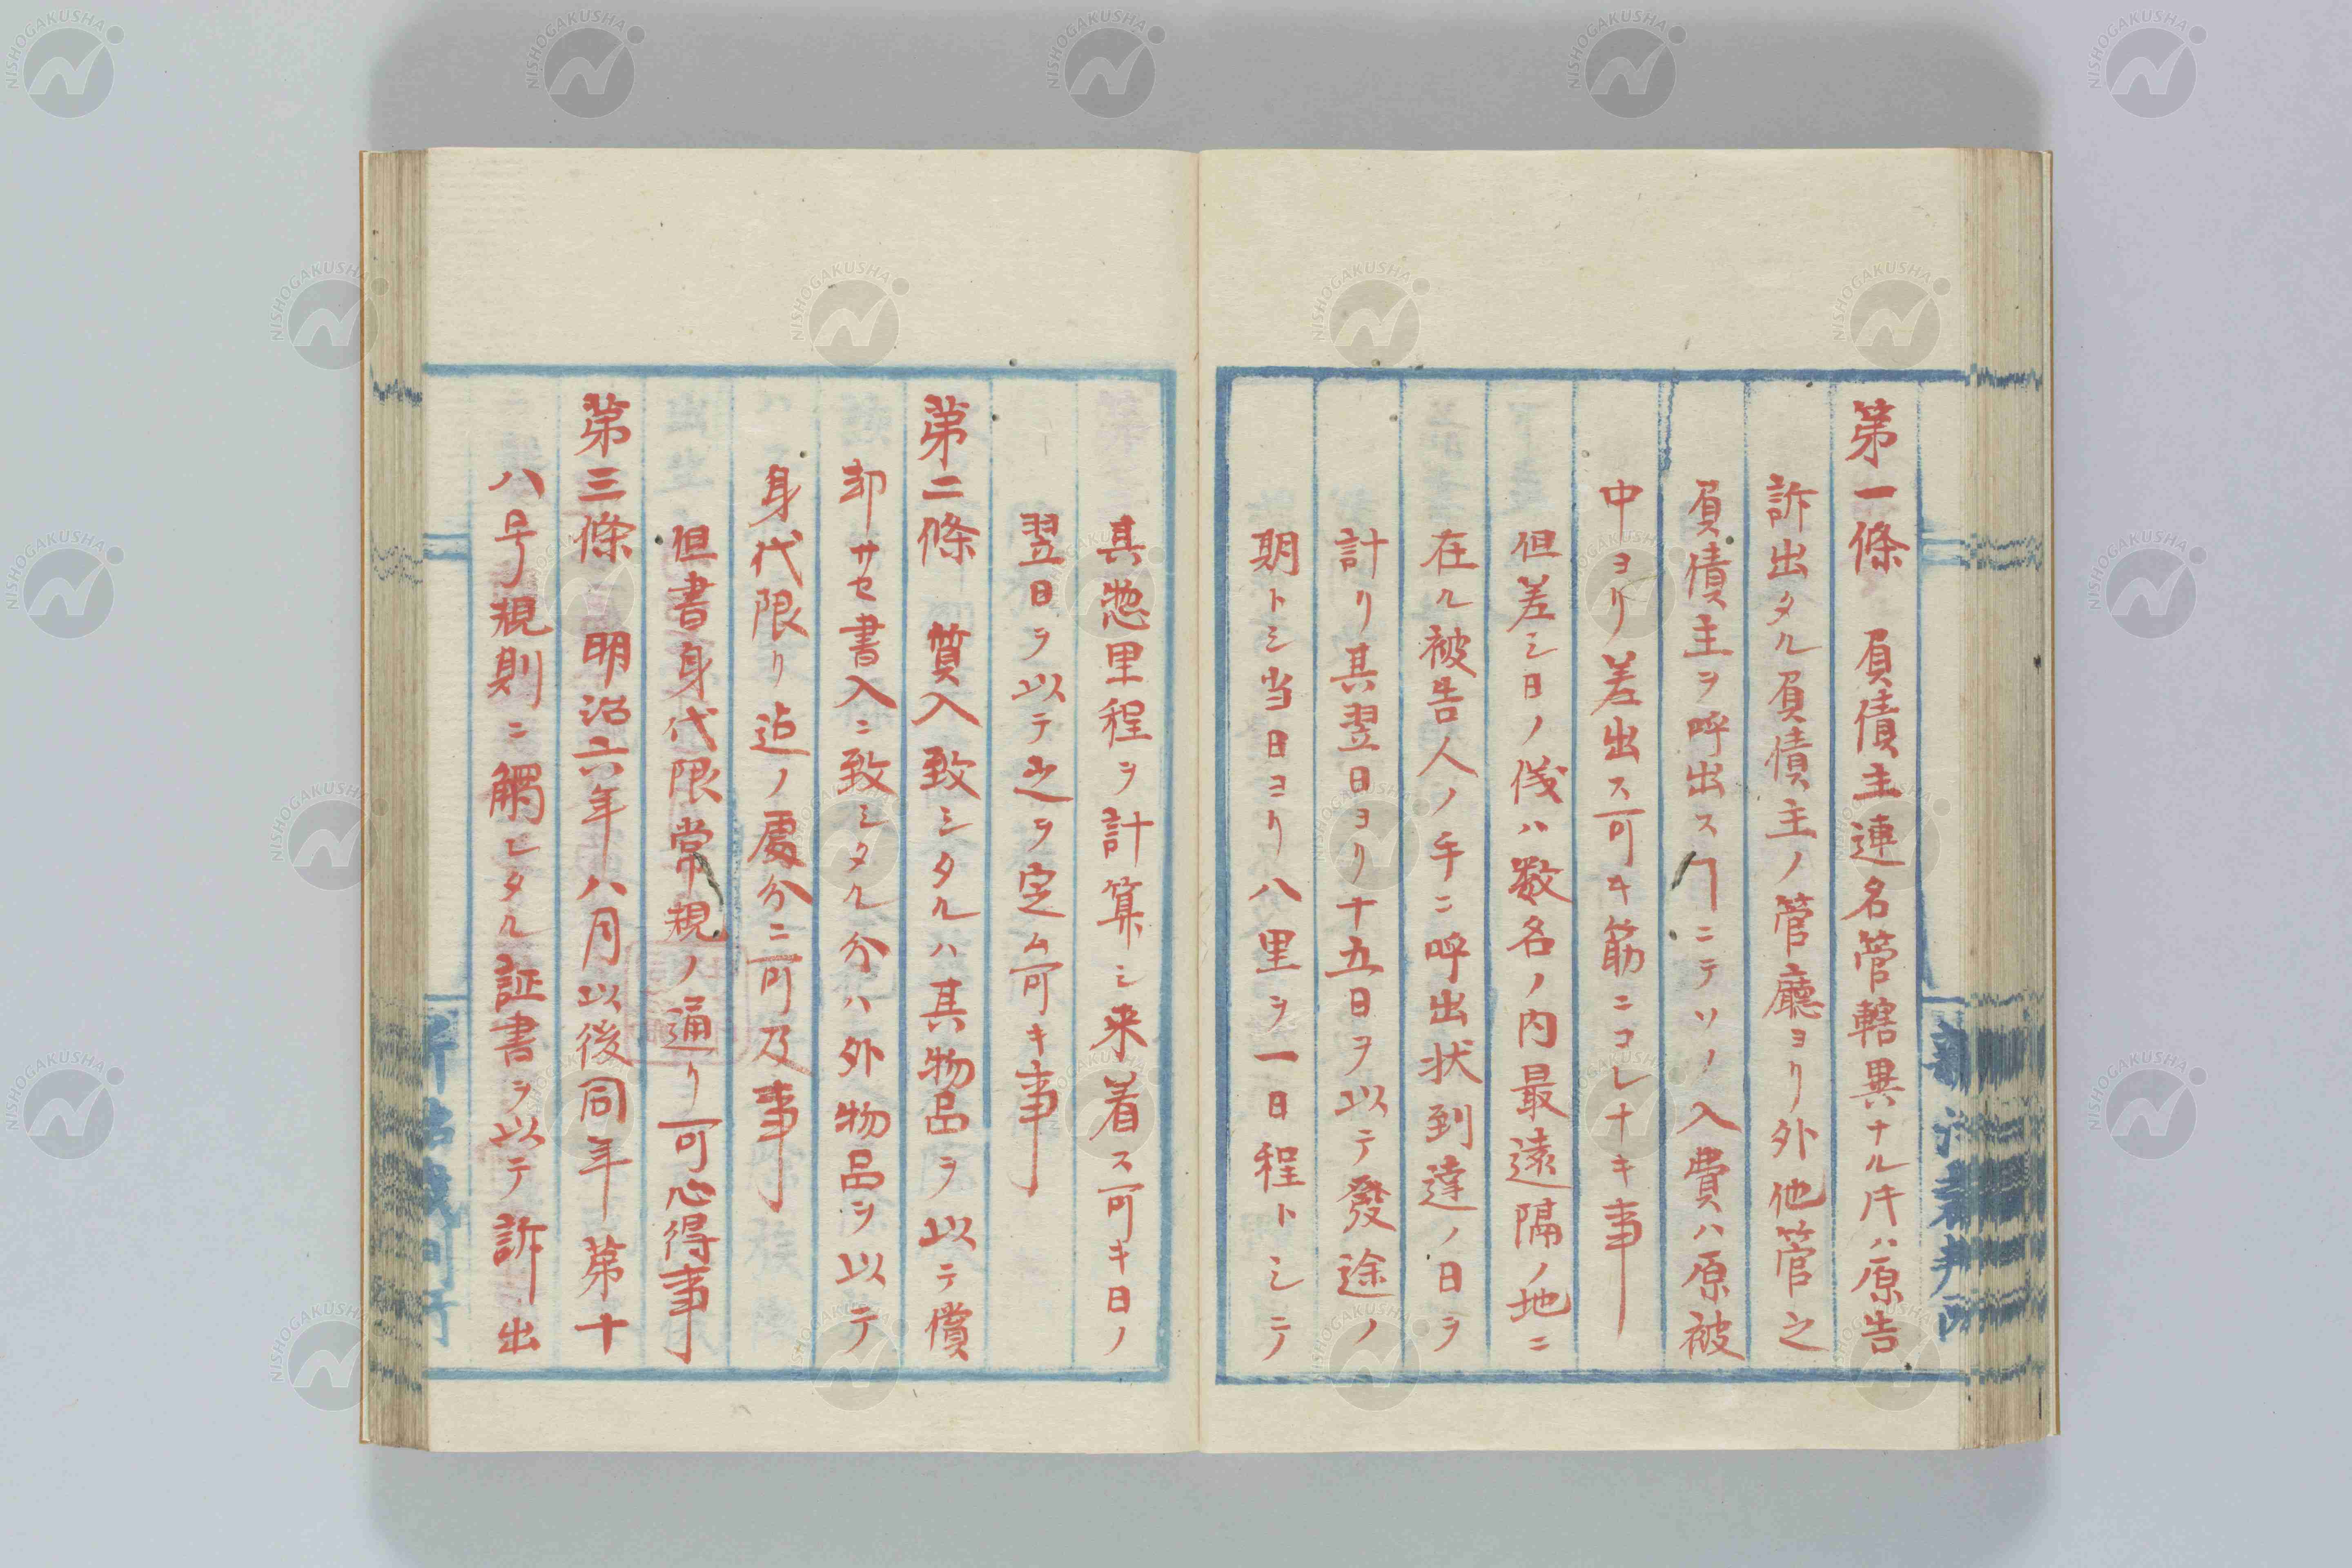 第一條 負債主連名管轄異ナル𪜈ハ原告
訴出タル負債主ノ管廳ヨリ外他管之
負債主ヲ呼出スヿニテソノ入費ハ原被
中ヨリ差出ス可キ筋ニコレナキ事
但差シ日ノ儀ハ数名ノ内最遠隔ノ地ニ
在ル被告人ノ手ニ呼出状到達ノ日ヲ
計リ其翌日ヨリ十五日ヲ以テ發途ノ
期トシ当日ヨリ八里ヲ一日程トシテ
其惣里程ヲ計算シ来着ス可キ日ノ
翌日ヲ以テ之ヲ定ム可キ事
第二條 質入致シタルハ其物品ヲ以テ償
却サセ書入ニ致シタル分ハ外物品ヲ以テ
身代限リ迠ノ處分ニ可及事
但書身代限常規ノ通リ可心得事
第三條 明治六年八月以後同年第十
八号規則ニ觸レタル証書ヲ以テ訴出
NISHOGAKUSHA